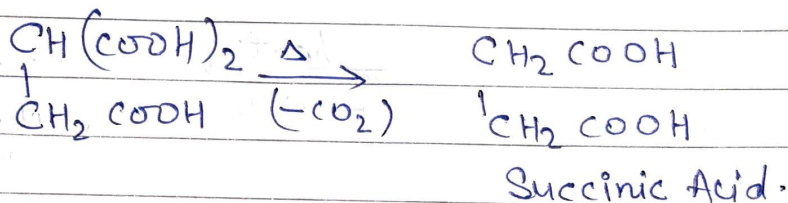 CH(COOH)₂ Δ CH₂ COOH
| ⟶ |
CH₂ COOH (-CO₂) CH₂ COOH
Succinic Acid.